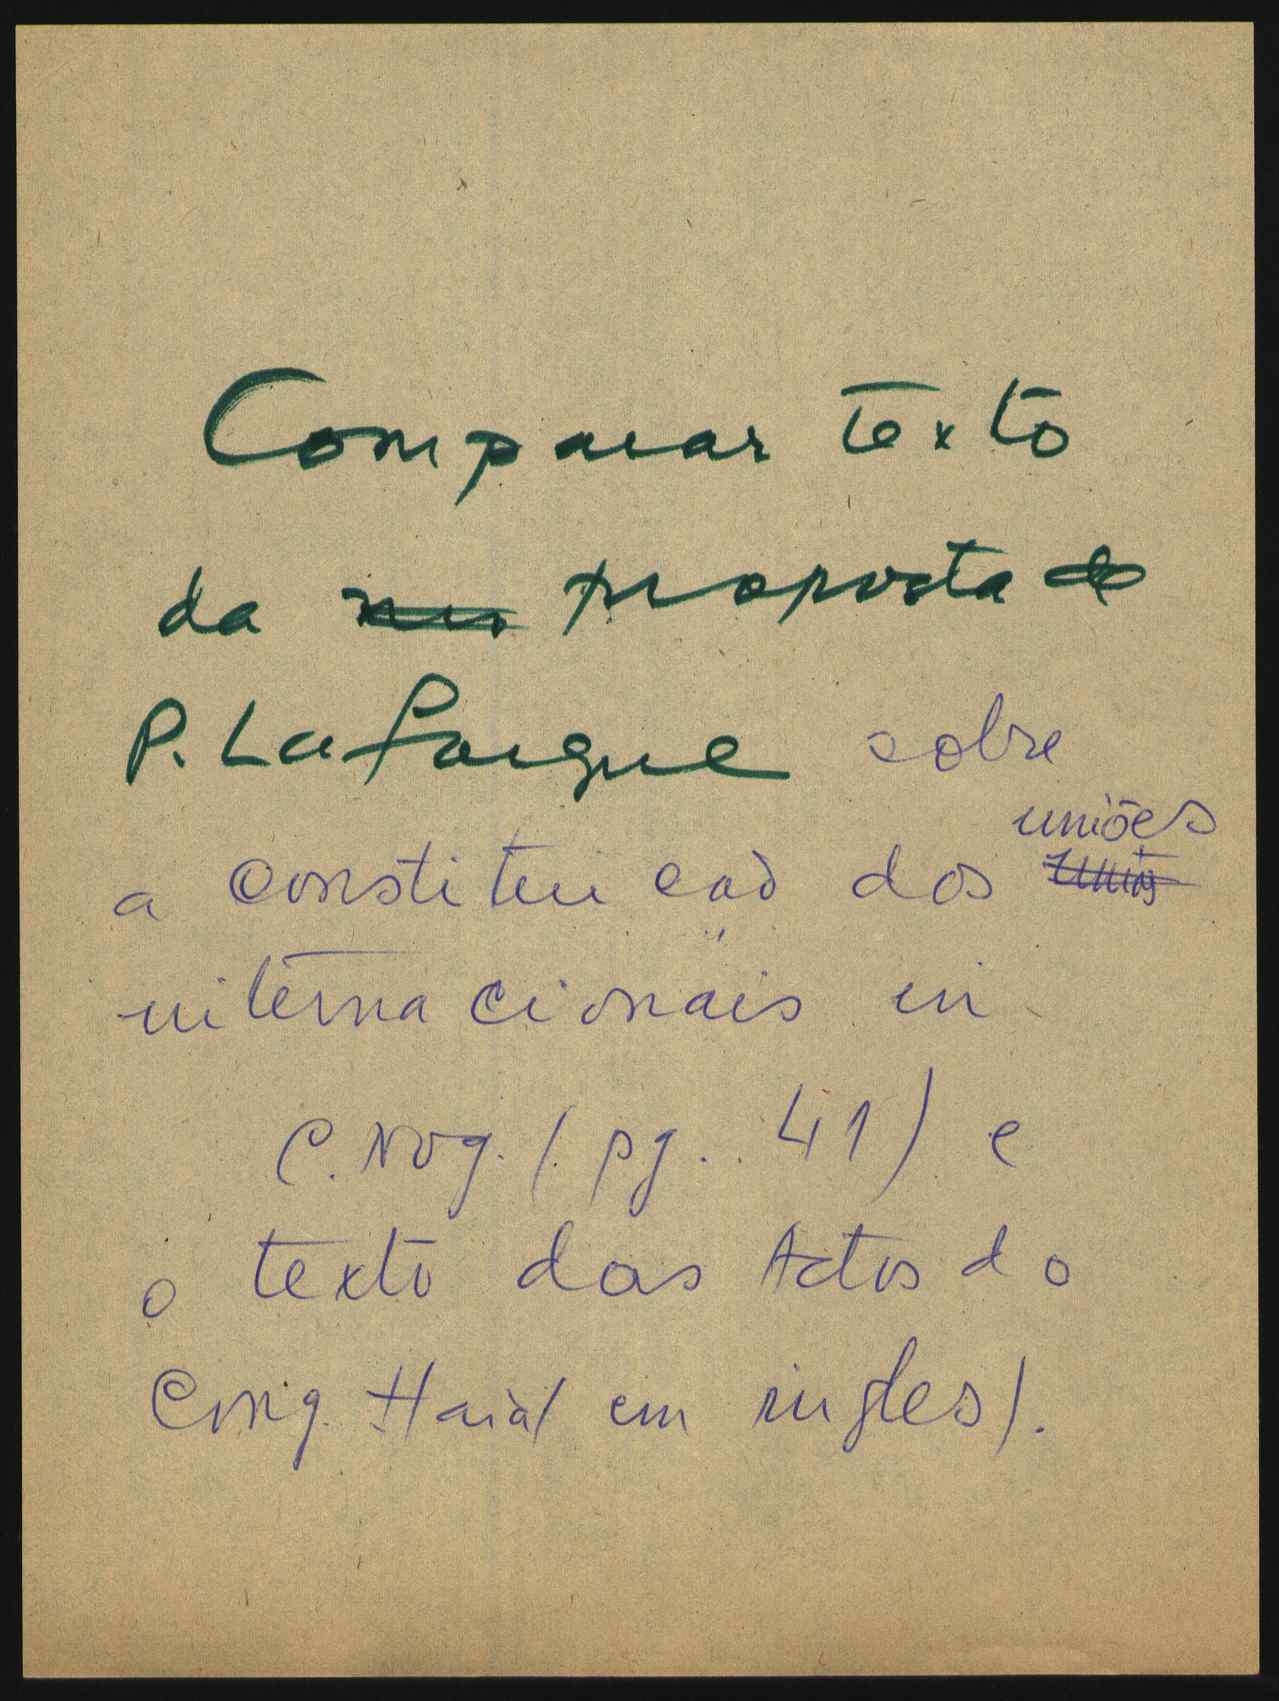 Comparar texto
da proposta de
P. Lafargue sobre
uniões
a constituição dos
internacionais in
C. Nog. (pg. 41) e
o texto das Actas do
Cong. Haia (em ingles).